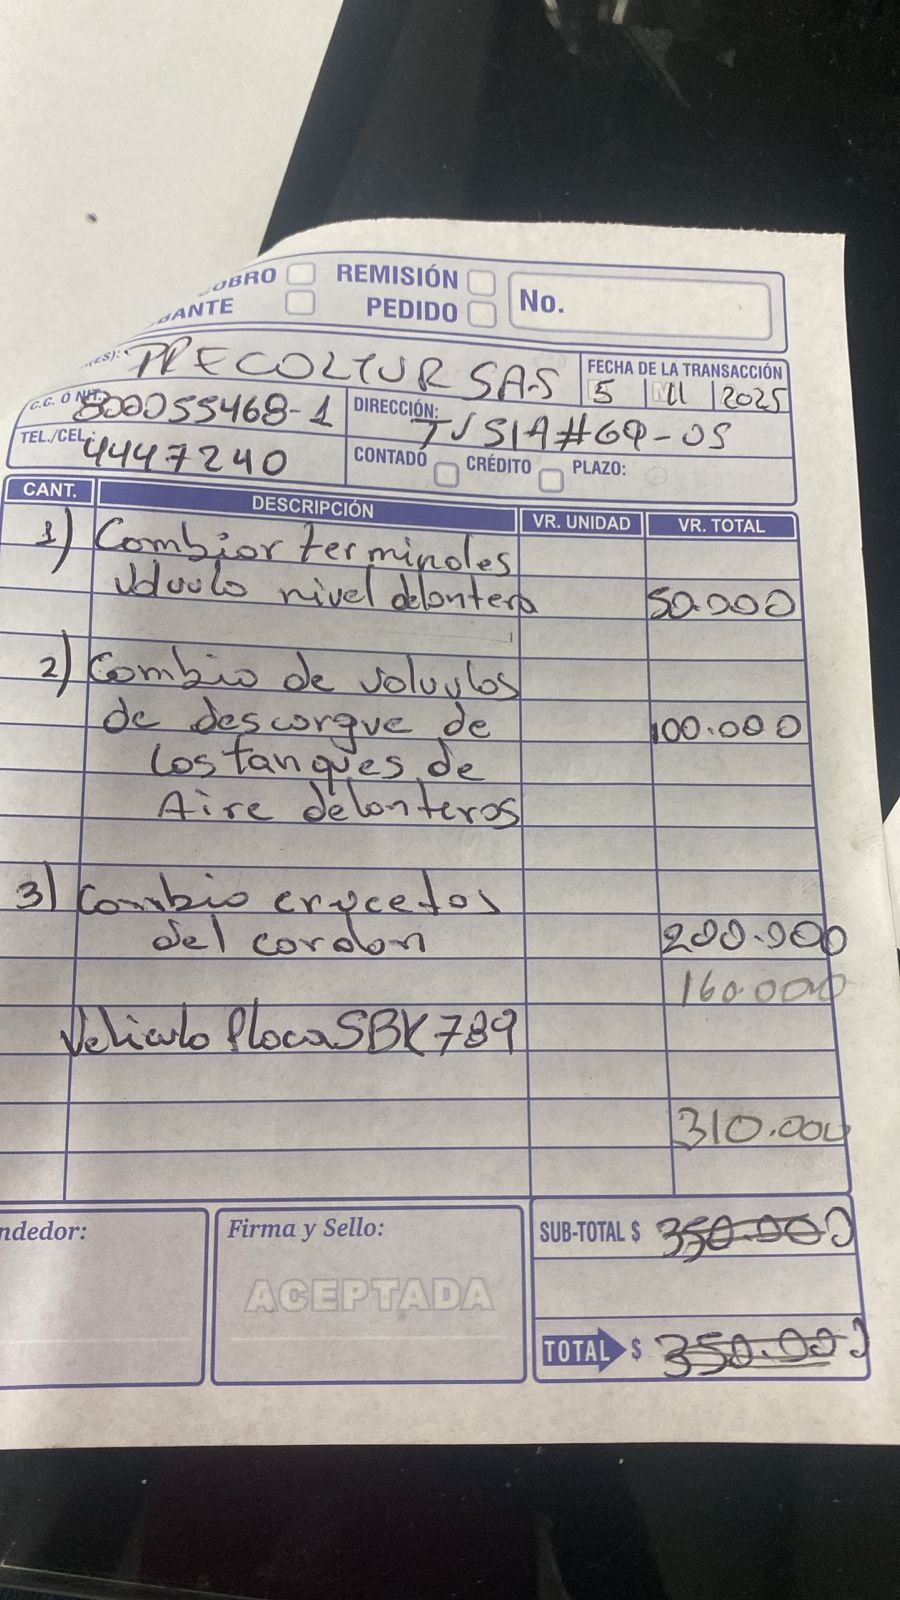 OBRO REMISIÓN No.
BANTE PEDIDO
ES): PRECOLTUR SAS FECHA DE LA TRANSACCIÓN
5 11 2025
C.C. O NIT. 800055468-1 DIRECCIÓN:
TEL./CEL. 4447240 CONTADO CRÉDITO PLAZO:
CANT. DESCRIPCIÓN VR. UNIDAD VR. TOTAL
1) Combior terminoles
nivel delontera 50.000
2) Combio de
de descorgue de 100.000
Los tanques de
Aire delonteros
3) Combio crucetos
del cordon 200.000
160.000
Vehiculo Placa SBK 789
310.000
ndedor: Firma y Sello: SUB-TOTAL $ 350.000
ACEPTADA
TOTAL $ 350.000